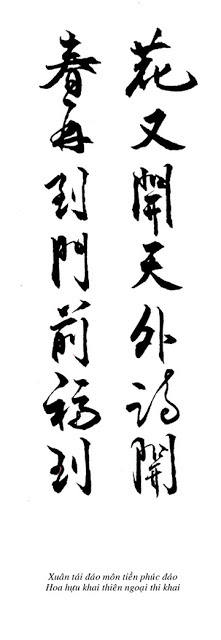 春再到門前福到
花又開天外詩開
Xuân tái đáo môn tiền phúc đáo
Hoa hựu khai thiên ngoại thi khai